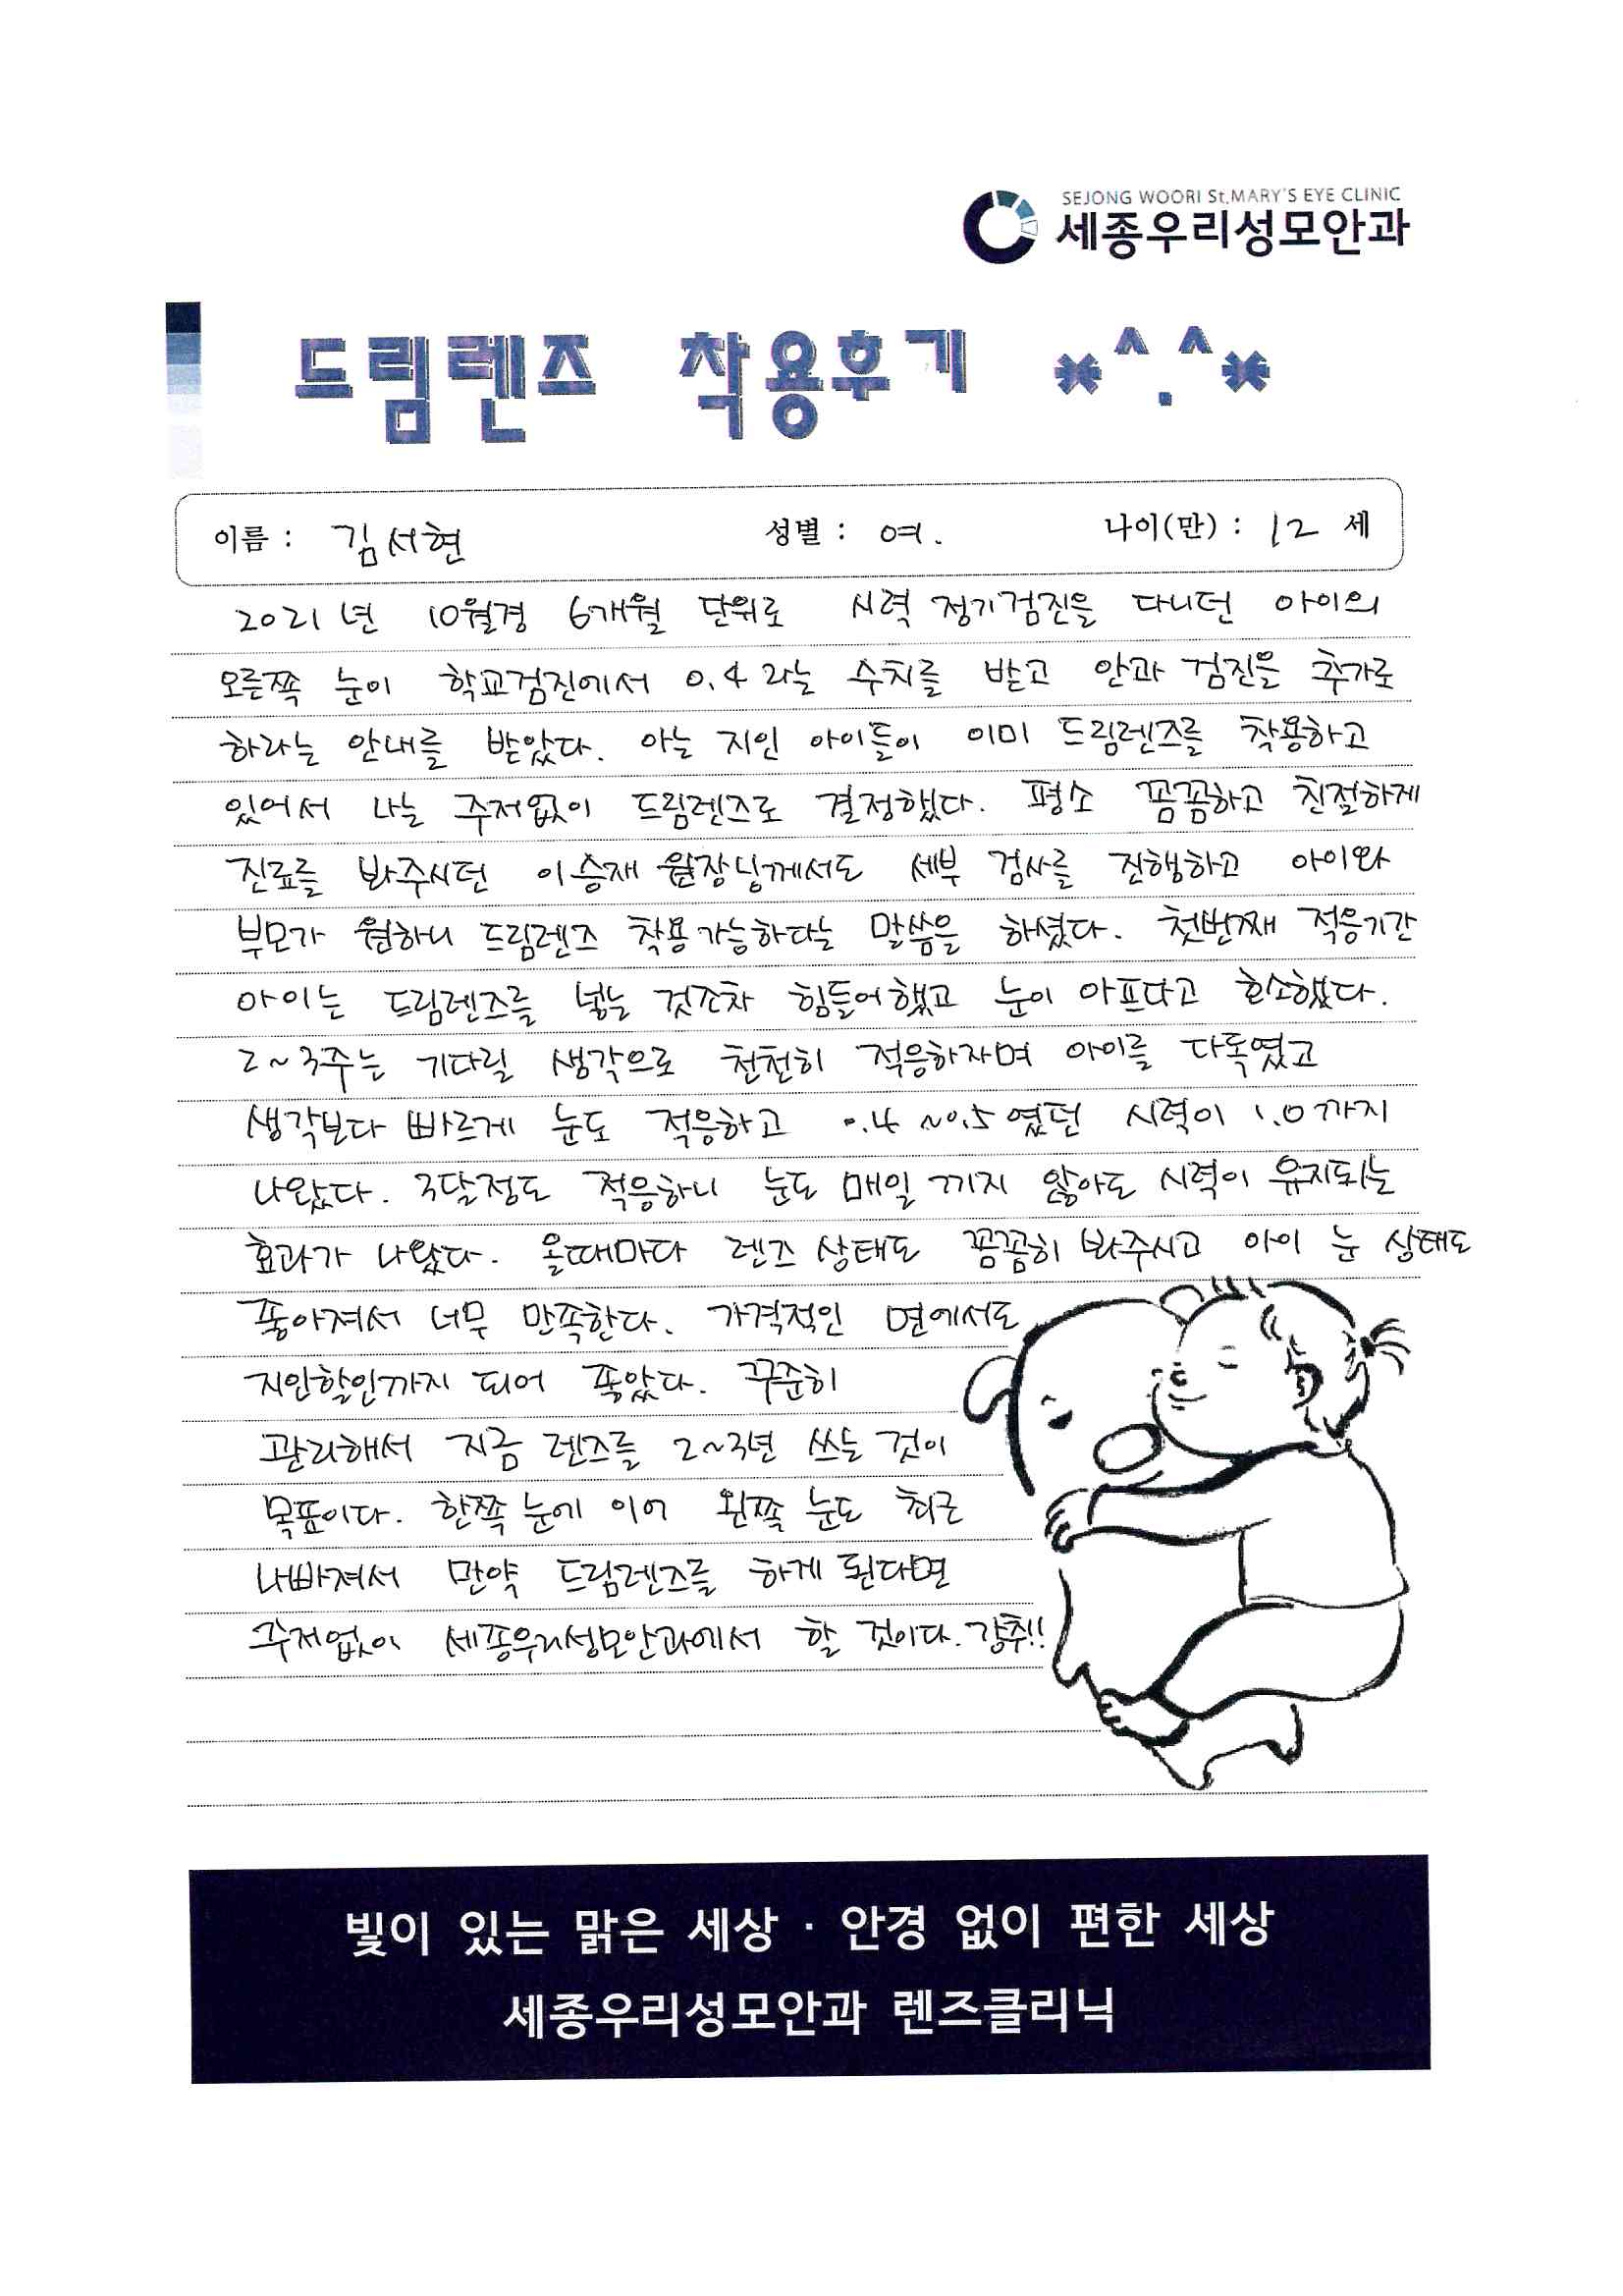 SEJONG WOORI St.MARY'S EYE CLINIC
세종우리성모안과
드림렌즈 착용후기 *^.^*
이름 : 김서현 성별 : 여. 나이(만) : 12 세
2021년 10월경 6개월 단위로 시력 정기검진을 다니던 아이의
오른쪽 눈이 학교검진에서 0.4 라는 수치를 받고 안과 검진을 추가로
하라는 안내를 받았다. 아는 지인 아이들이 이미 드림렌즈를 착용하고
있어서 나는 주저없이 드림렌즈로 결정했다. 평소 꼼꼼하고 친절하게
진료를 봐주시던 이승재 원장님께서도 세부 검사를 진행하고 아이와
부모가 원하니 드림렌즈 착용가능하다는 말씀을 하셨다. 첫번째 적응기간
아이는 드림렌즈를 넣는 것조차 힘들어했고 눈이 아프다고 호소했다.
2~3주는 기다릴 생각으로 천천히 적응하자며 아이를 다독였고
생각보다 빠르게 눈도 적응하고 0.4 ~0.5 였던 시력이 1.0까지
나왔다. 3달정도 적응하니 눈도 매일 끼지 않아도 시력이 유지되는
효과가 나왔다. 올때마다 렌즈 상태도 꼼꼼히 봐주시고 아이 눈 상태도
좋아져서 너무 만족한다. 가격적인 면에서도
지인할인까지 되어 좋았다. 꾸준히
관리해서 지금 렌즈를 2~3년 쓰는 것이
목표이다. 한쪽 눈에 이어 왼쪽 눈도 최근
나빠져서 만약 드림렌즈를 하게 된다면
주저없이 세종우리성모안과에서 할 것이다. 강추!!
빛이 있는 맑은 세상 · 안경 없이 편한 세상
세종우리성모안과 렌즈클리닉